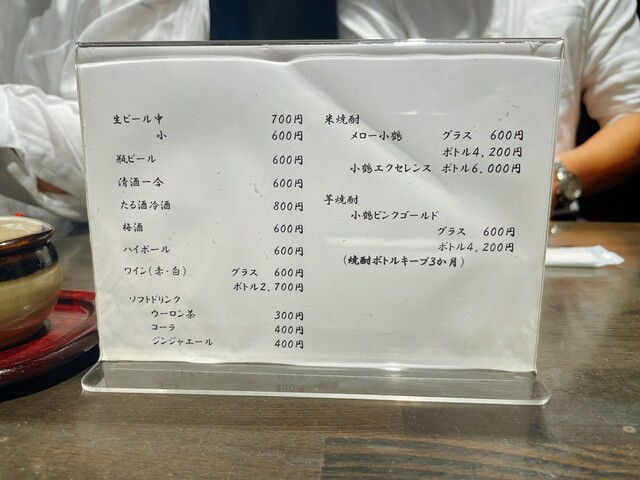 生ビール中 700円
小 600円
瓶ビール 600円
清酒一合 600円
たる酒冷酒 800円
梅酒 600円
ハイボール 600円
ワイン(赤・白) グラス 600円
ボトル2,700円
ソフトドリンク
ウーロン茶 300円
コーラ 400円
ジンジャエール 400円
米焼酎
メロー小鶴 グラス 600円
ボトル4,200円
小鶴エクセレンス ボトル6,000円
芋焼酎
小鶴ピンクゴールド
グラス 600円
ボトル4,200円
(焼酎ボトルキープ3か月)